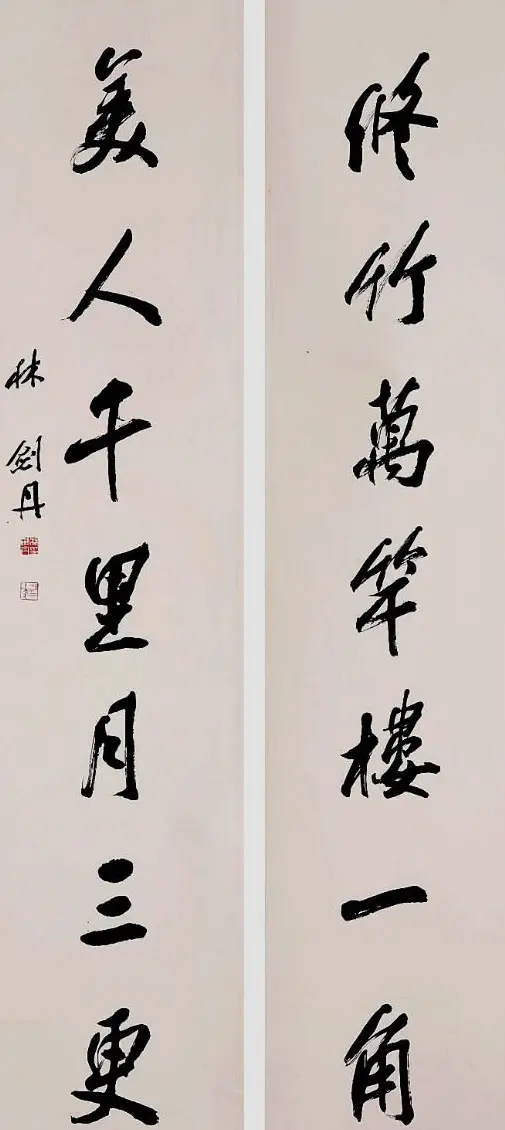 修竹萬竿樓一角
美人千里月三更
林劍丹